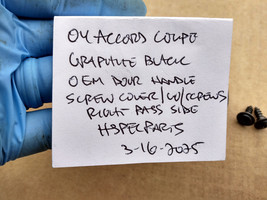 04 ACCORD COUPE
GRAPHITE BLACK
OEM DOOR HANDLE
SCREW COVER/W/SCREWS/
RIGHT PASS SIDE
H3PECPARTS
3-16-2025